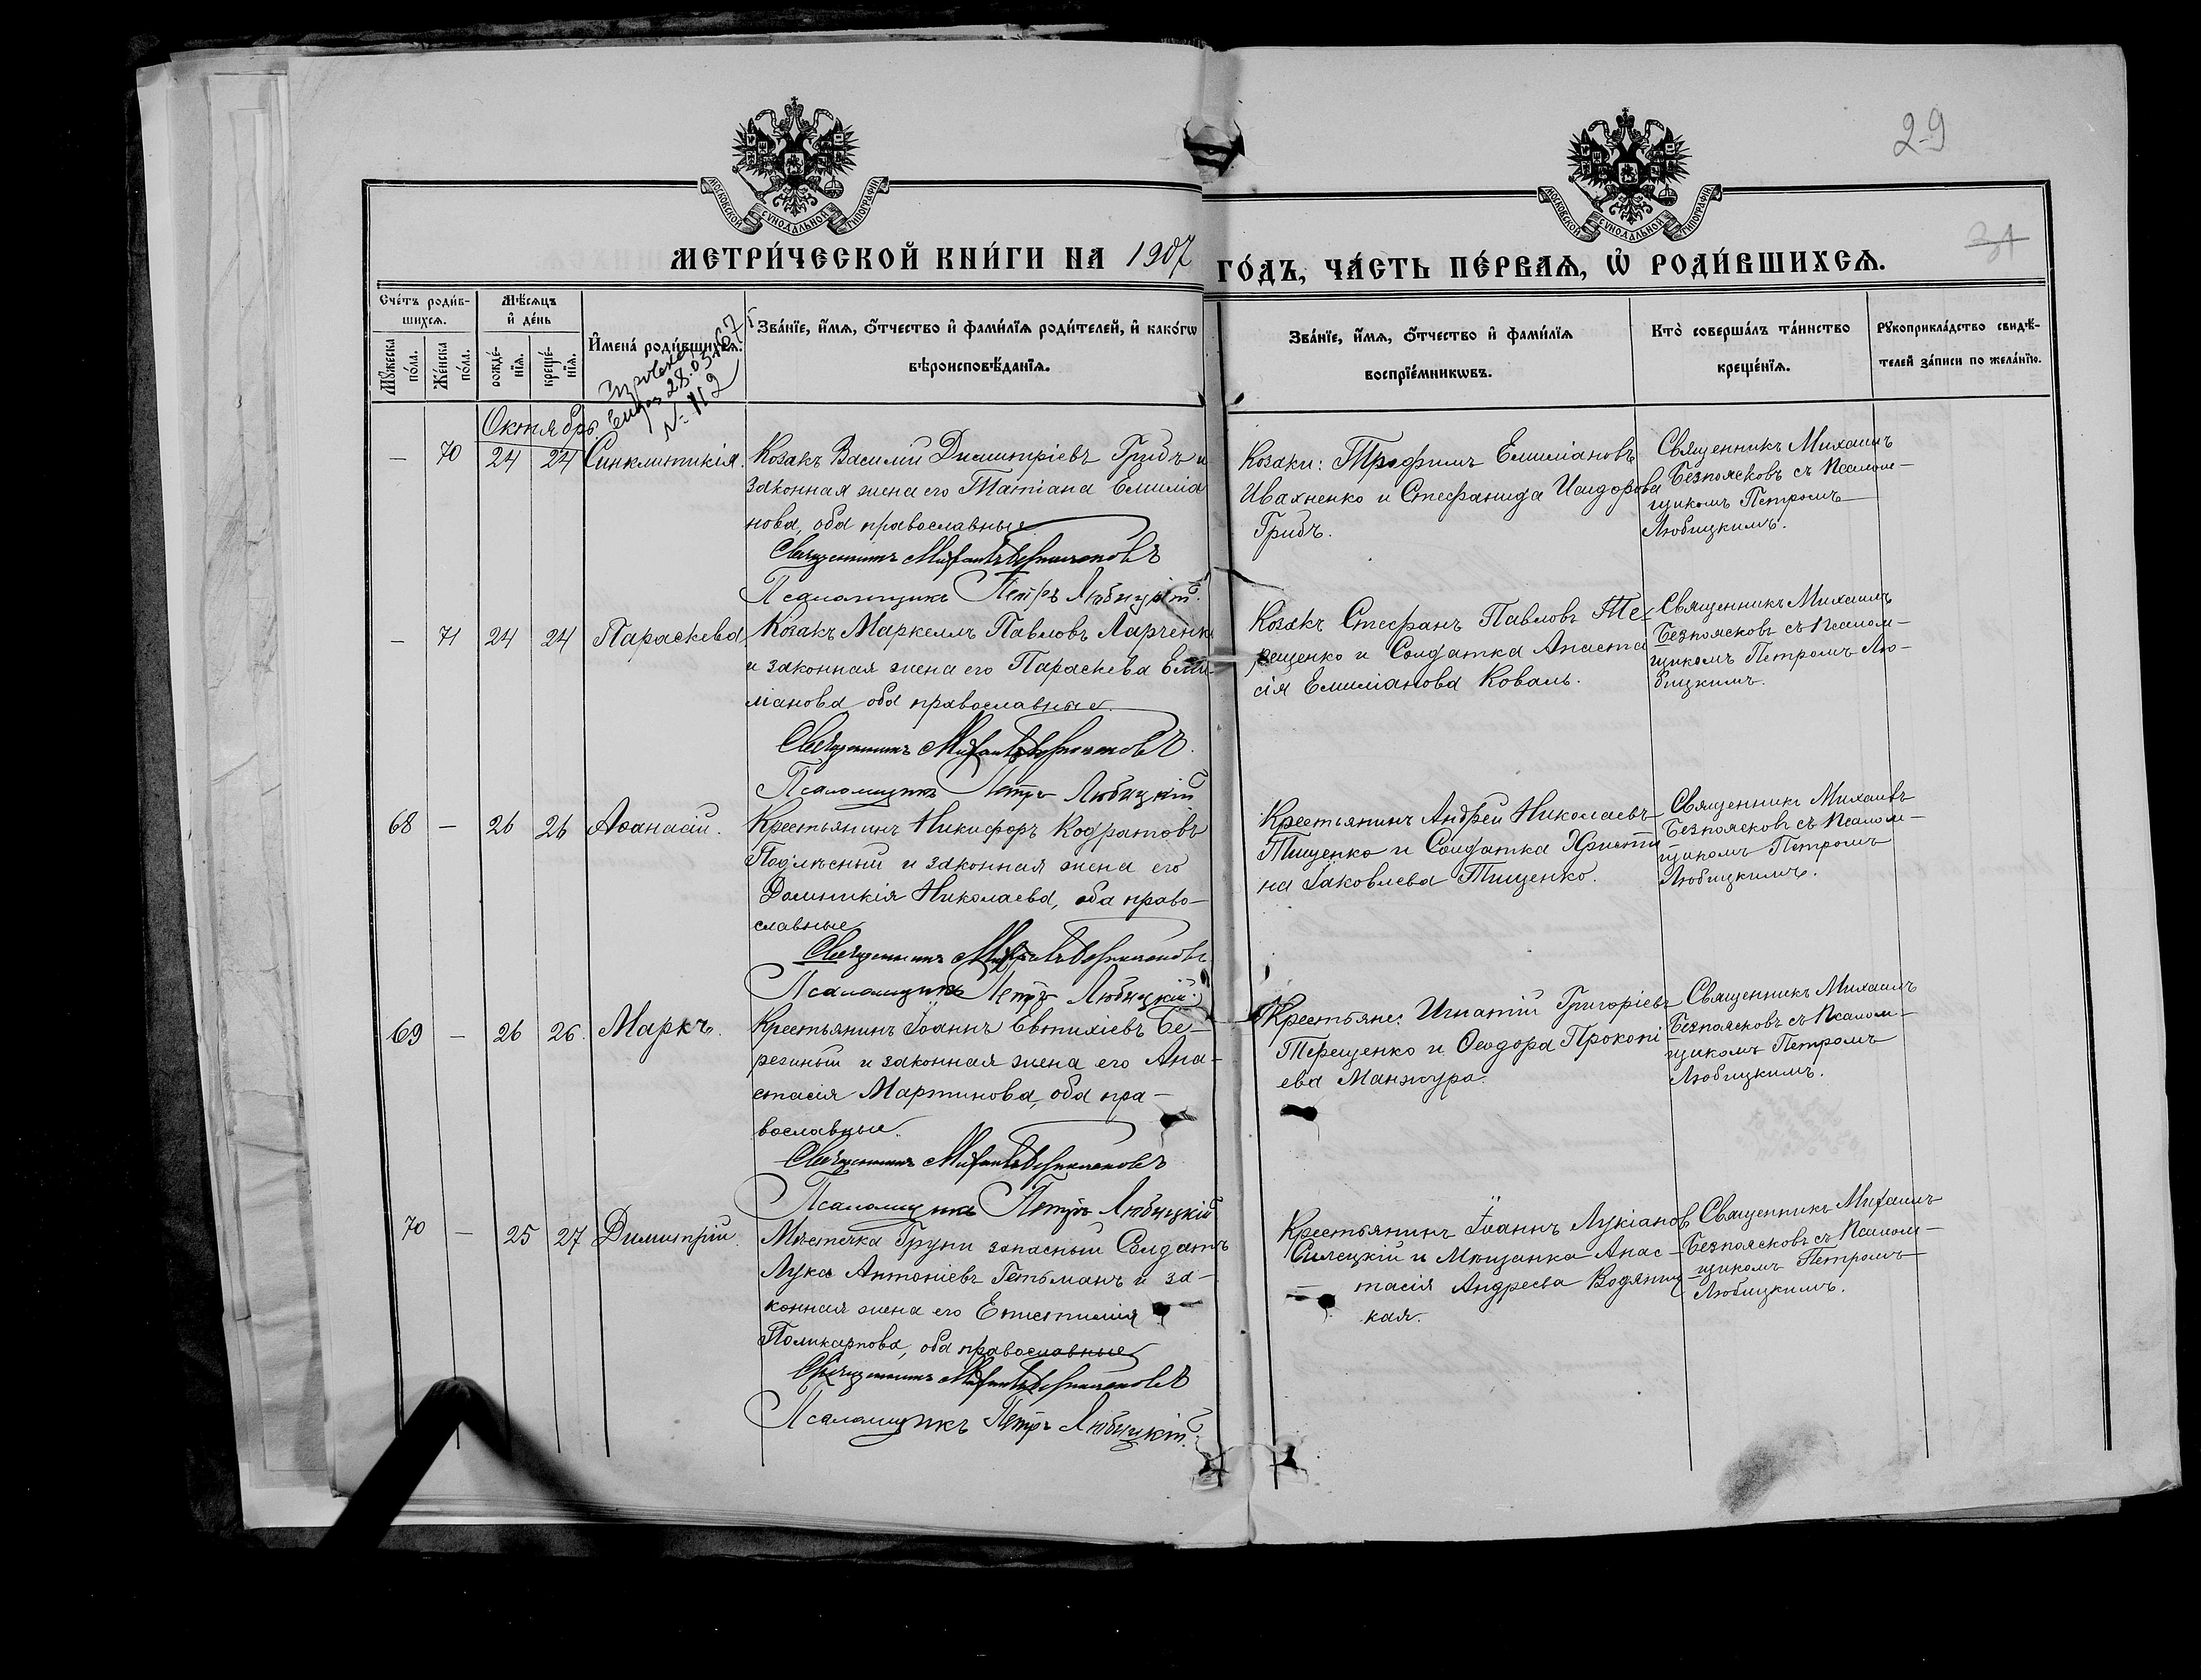 29
31
МОСКОВСКОЙ СѴНОДАЛЬНОЙ ТИПОГРАФІИ
МОСКОВСКОЙ СѴНОДАЛЬНОЙ ТИПОГРАФІИ
МЕТРИ́ЧЕСКОЙ КНИ́ГИ НА 1907 ГО́ДЪ, ЧА́СТЬ ПЕ́РВАѦ, Ѡ҆ РОДИ́ВШИХСѦ.
Сче́тъ роди́в-
шихсѧ.
Мꙋ́жеска по́ла.
Же́нска по́ла.
Мѣ́сѧцъ
и҆ де́нь
рожде́-
нїѧ.
креще́-
нїѧ.
И҆мена̀ роди́вшихсѧ.
Зва́нїе, и҆́мѧ, ѻ҆́тчество и҆ фами́лїѧ роди́телей, и҆ како́гѡ
вѣроисповѣ́данїѧ.
Зва́нїе, и҆́мѧ, ѻ҆́тчество и҆ фами́лїѧ
воспрїе́мникѡвъ.
Кто̀ соверша́лъ та́инство
креще́нїѧ.
Рꙋкоприкла́дство свидѣ́-
телей за́писи по жела́нїю.
28.03.67
№ 112
Октябрь.
— 70 24 24 Синклитикія.
Козакъ Василій Димитріевъ Грибъ и
законная жена его Татіана Емиліа
нова, оба православные
Священникъ Михаилъ Безпоясковъ
Псаломщикъ Петръ Любицкій.
Козаки: Трофимъ Емиліановъ
Ивахненко и Стефанида Исидорова
Грибъ.
Священникъ Михаилъ
Безпоясковъ съ Псалом-
щикомъ Петромъ
Любицкимъ.
— 71 24 24 Параскева.
Козакъ Маркеллъ Павловъ Ларченко
и законная жена его Параскева Еми-
ліанова оба православные.
Священникъ Михаилъ Безпоясковъ.
Псаломщикъ Петръ Любицкій
Козакъ Стефанъ Павловъ Те-
рещенко и Солдатка Анаста
сія Емиліанова Коваль.
Священникъ Михаилъ
Безпоясковъ съ Псалом-
щикомъ Петромъ Лю-
бицкимъ.
68 — 26 26 Аѳанасій.
Крестьянинъ Никифоръ Кодратовъ
Подлѣсный и законная жена его
Домникія Николаева, оба право-
славные
Священникъ Михаилъ Безпоясковъ
Псаломщикъ Петръ Любицкій.
Крестьянинъ Андрей Николаевъ
Тищенко и Солдатка Христи
на Іаковлева Тищенко.
Священникъ Михаилъ
Безпоясковъ съ Псалом-
щикомъ Петромъ
Любицкимъ.
69 — 26 26. Маркъ.
Крестьянинъ Іоаннъ Евтихіевъ Бе-
резный и законная жена его Ана-
стасія Мартинова, оба пра-
вославные.
Священникъ Михаилъ Безпоясковъ
Псаломщикъ Петръ Любицкій
Крестьяне: Игнатій Григоріевъ
Терещенко и Ѳеодора Прокопі
ева Манжура.
Священникъ Михаилъ
Безпоясковъ съ Псалом-
щикомъ Петромъ
Любицкимъ.
70 — 25 27 Димитрій.
Мѣстечка Груни запасный Солдатъ
Лука Антоніевъ Гетьманъ и за-
конная жена его Епистимія
Поликарпова, оба православные
Священникъ Михаилъ Безпоясковъ
Псаломщикъ Петръ Любицкій.
Крестьянинъ Іоаннъ Лукіановъ
Силецкій и Мѣщанка Анас-
тасія Андреева Водяниц
кая.
Священникъ Михаилъ
Безпоясковъ съ Псалом-
щикомъ Петромъ
Любицкимъ.